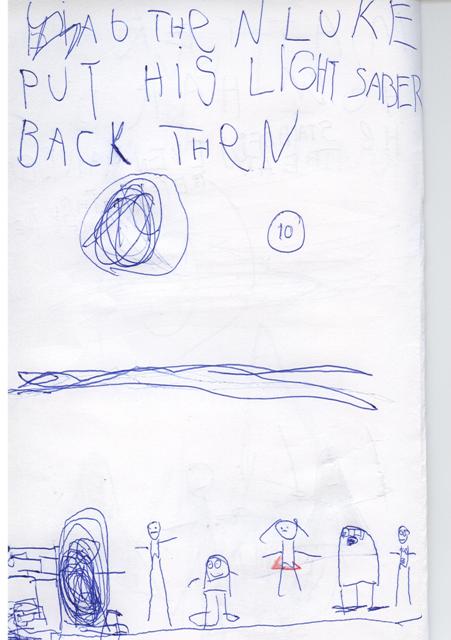 THeN LUKE
PUT HiS LIGHT SABER
BACK THeN
10